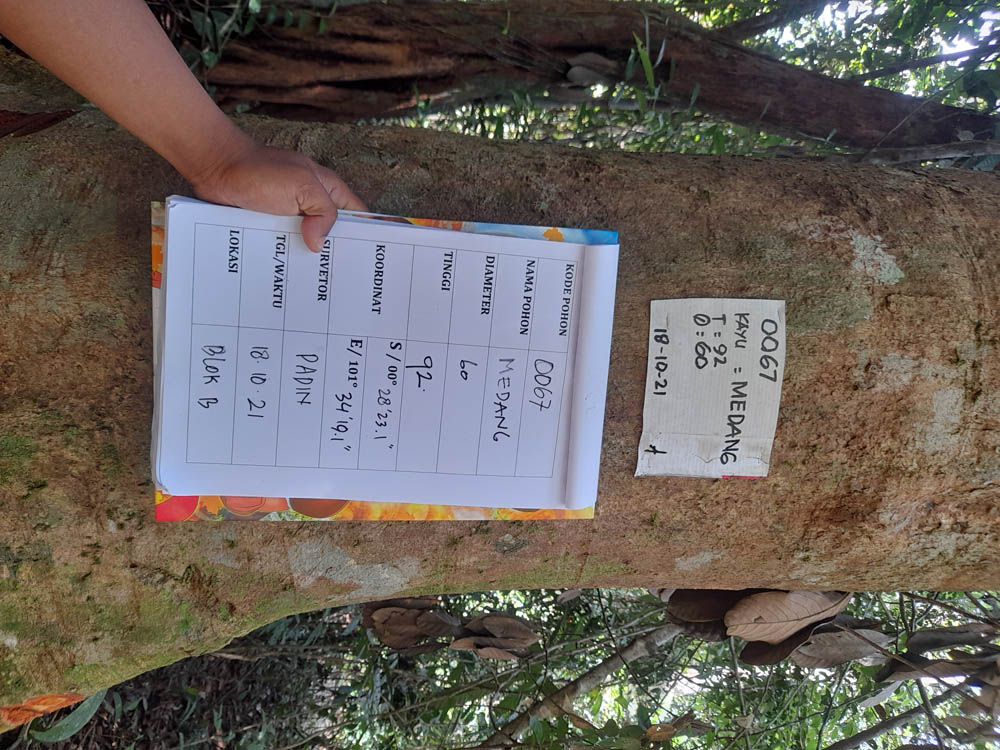 0067
KAYU = MEDANG
T = 92
Ø = 60
18-10-21
KODE POHON 0067
NAMA POHON MEDANG
DIAMETER 60
TINGGI 92.
KOORDINAT S / 00° 28'23.1"
E/ 101° 34'19.1"
SURVETOR PADIN
TGL/WAKTU 18.10.21
LOKASI BLOK B